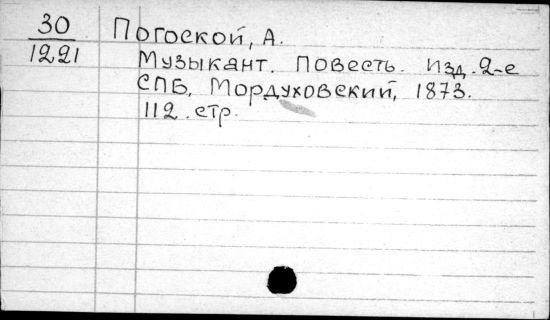 30
1221
Погоской, А.
Музыкант. Повесть. Изд. 2-е
СПБ, Мордуховский, 1873.
112. стр.